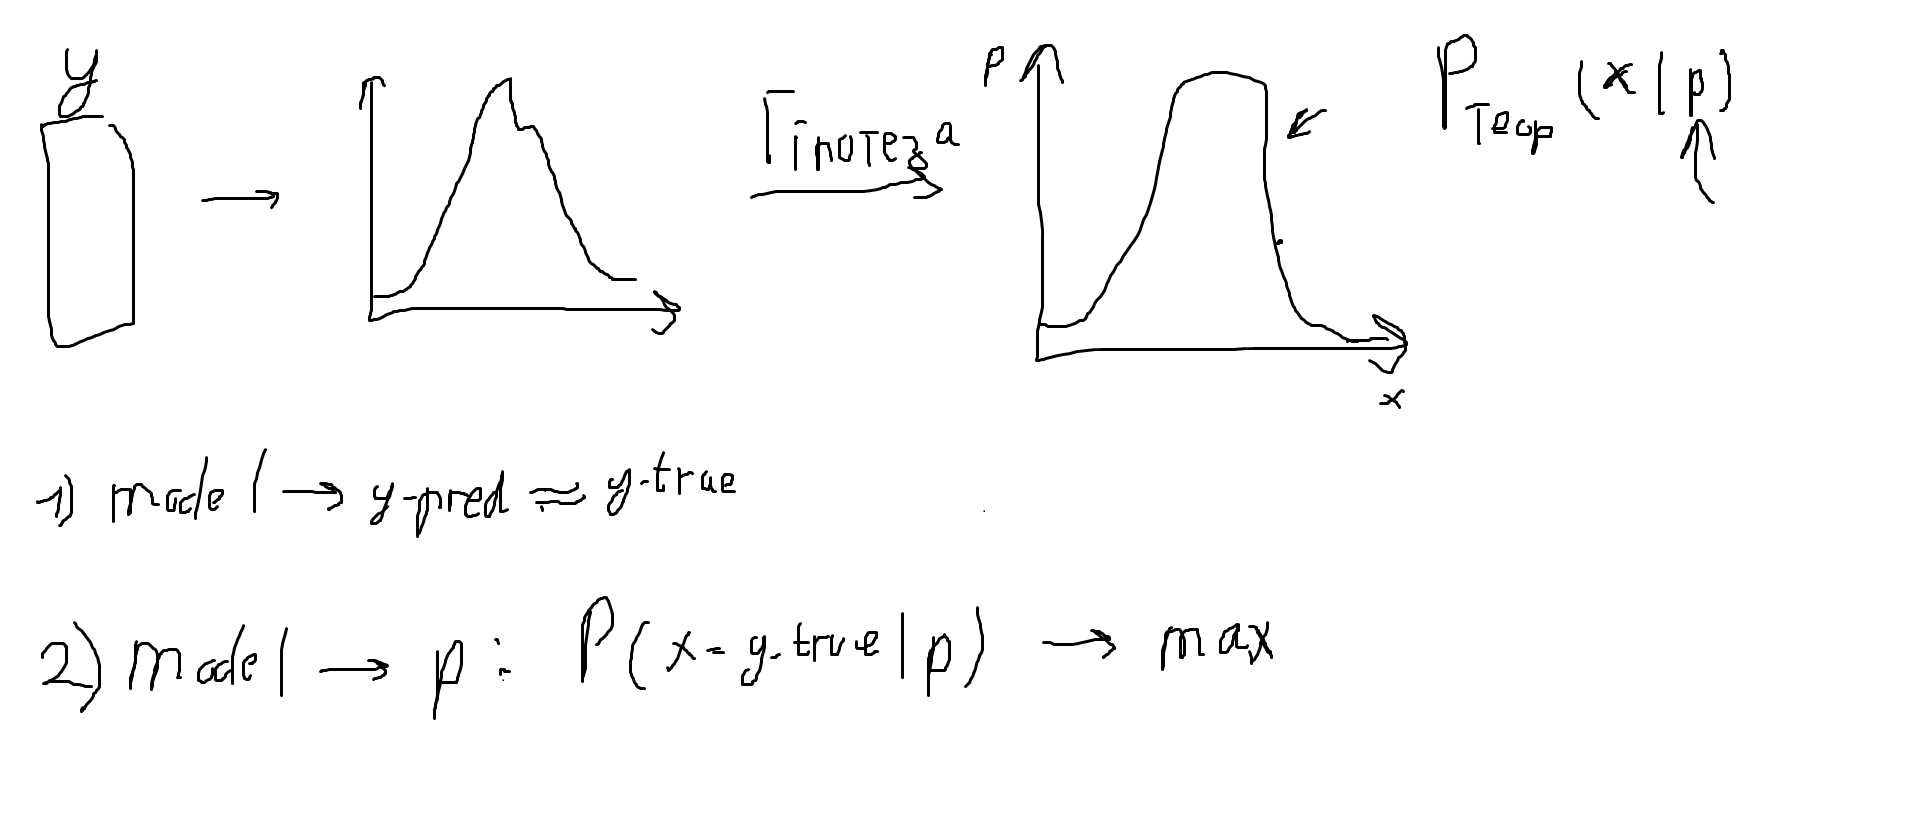 y
Гіпотеза
P
P теор (x | p)
x
1) model → y-pred ≈ y-true
2) model → p : P(x = y-true | p) → max